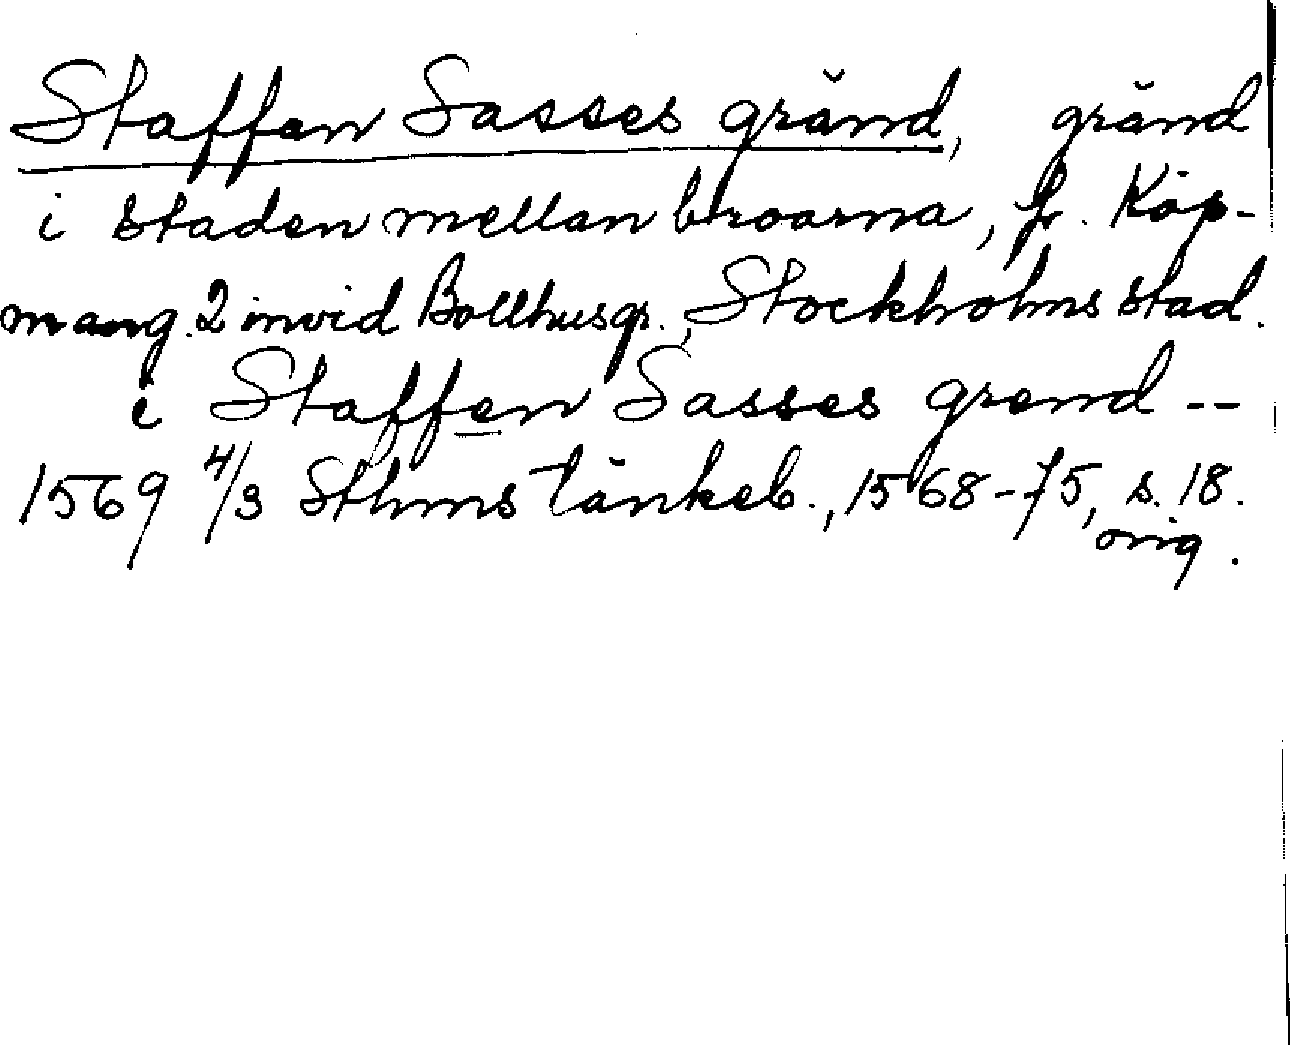 Staffan Sasses gränd, gränd
i staden mellan broarna, fr. Köp-
mang. 2 invid Bollhusgr., Stockholms stad.
i Staffen Sasses grend --
1569 4/3 Sthms tänkeb., 1568-75, s. 18.
orig.